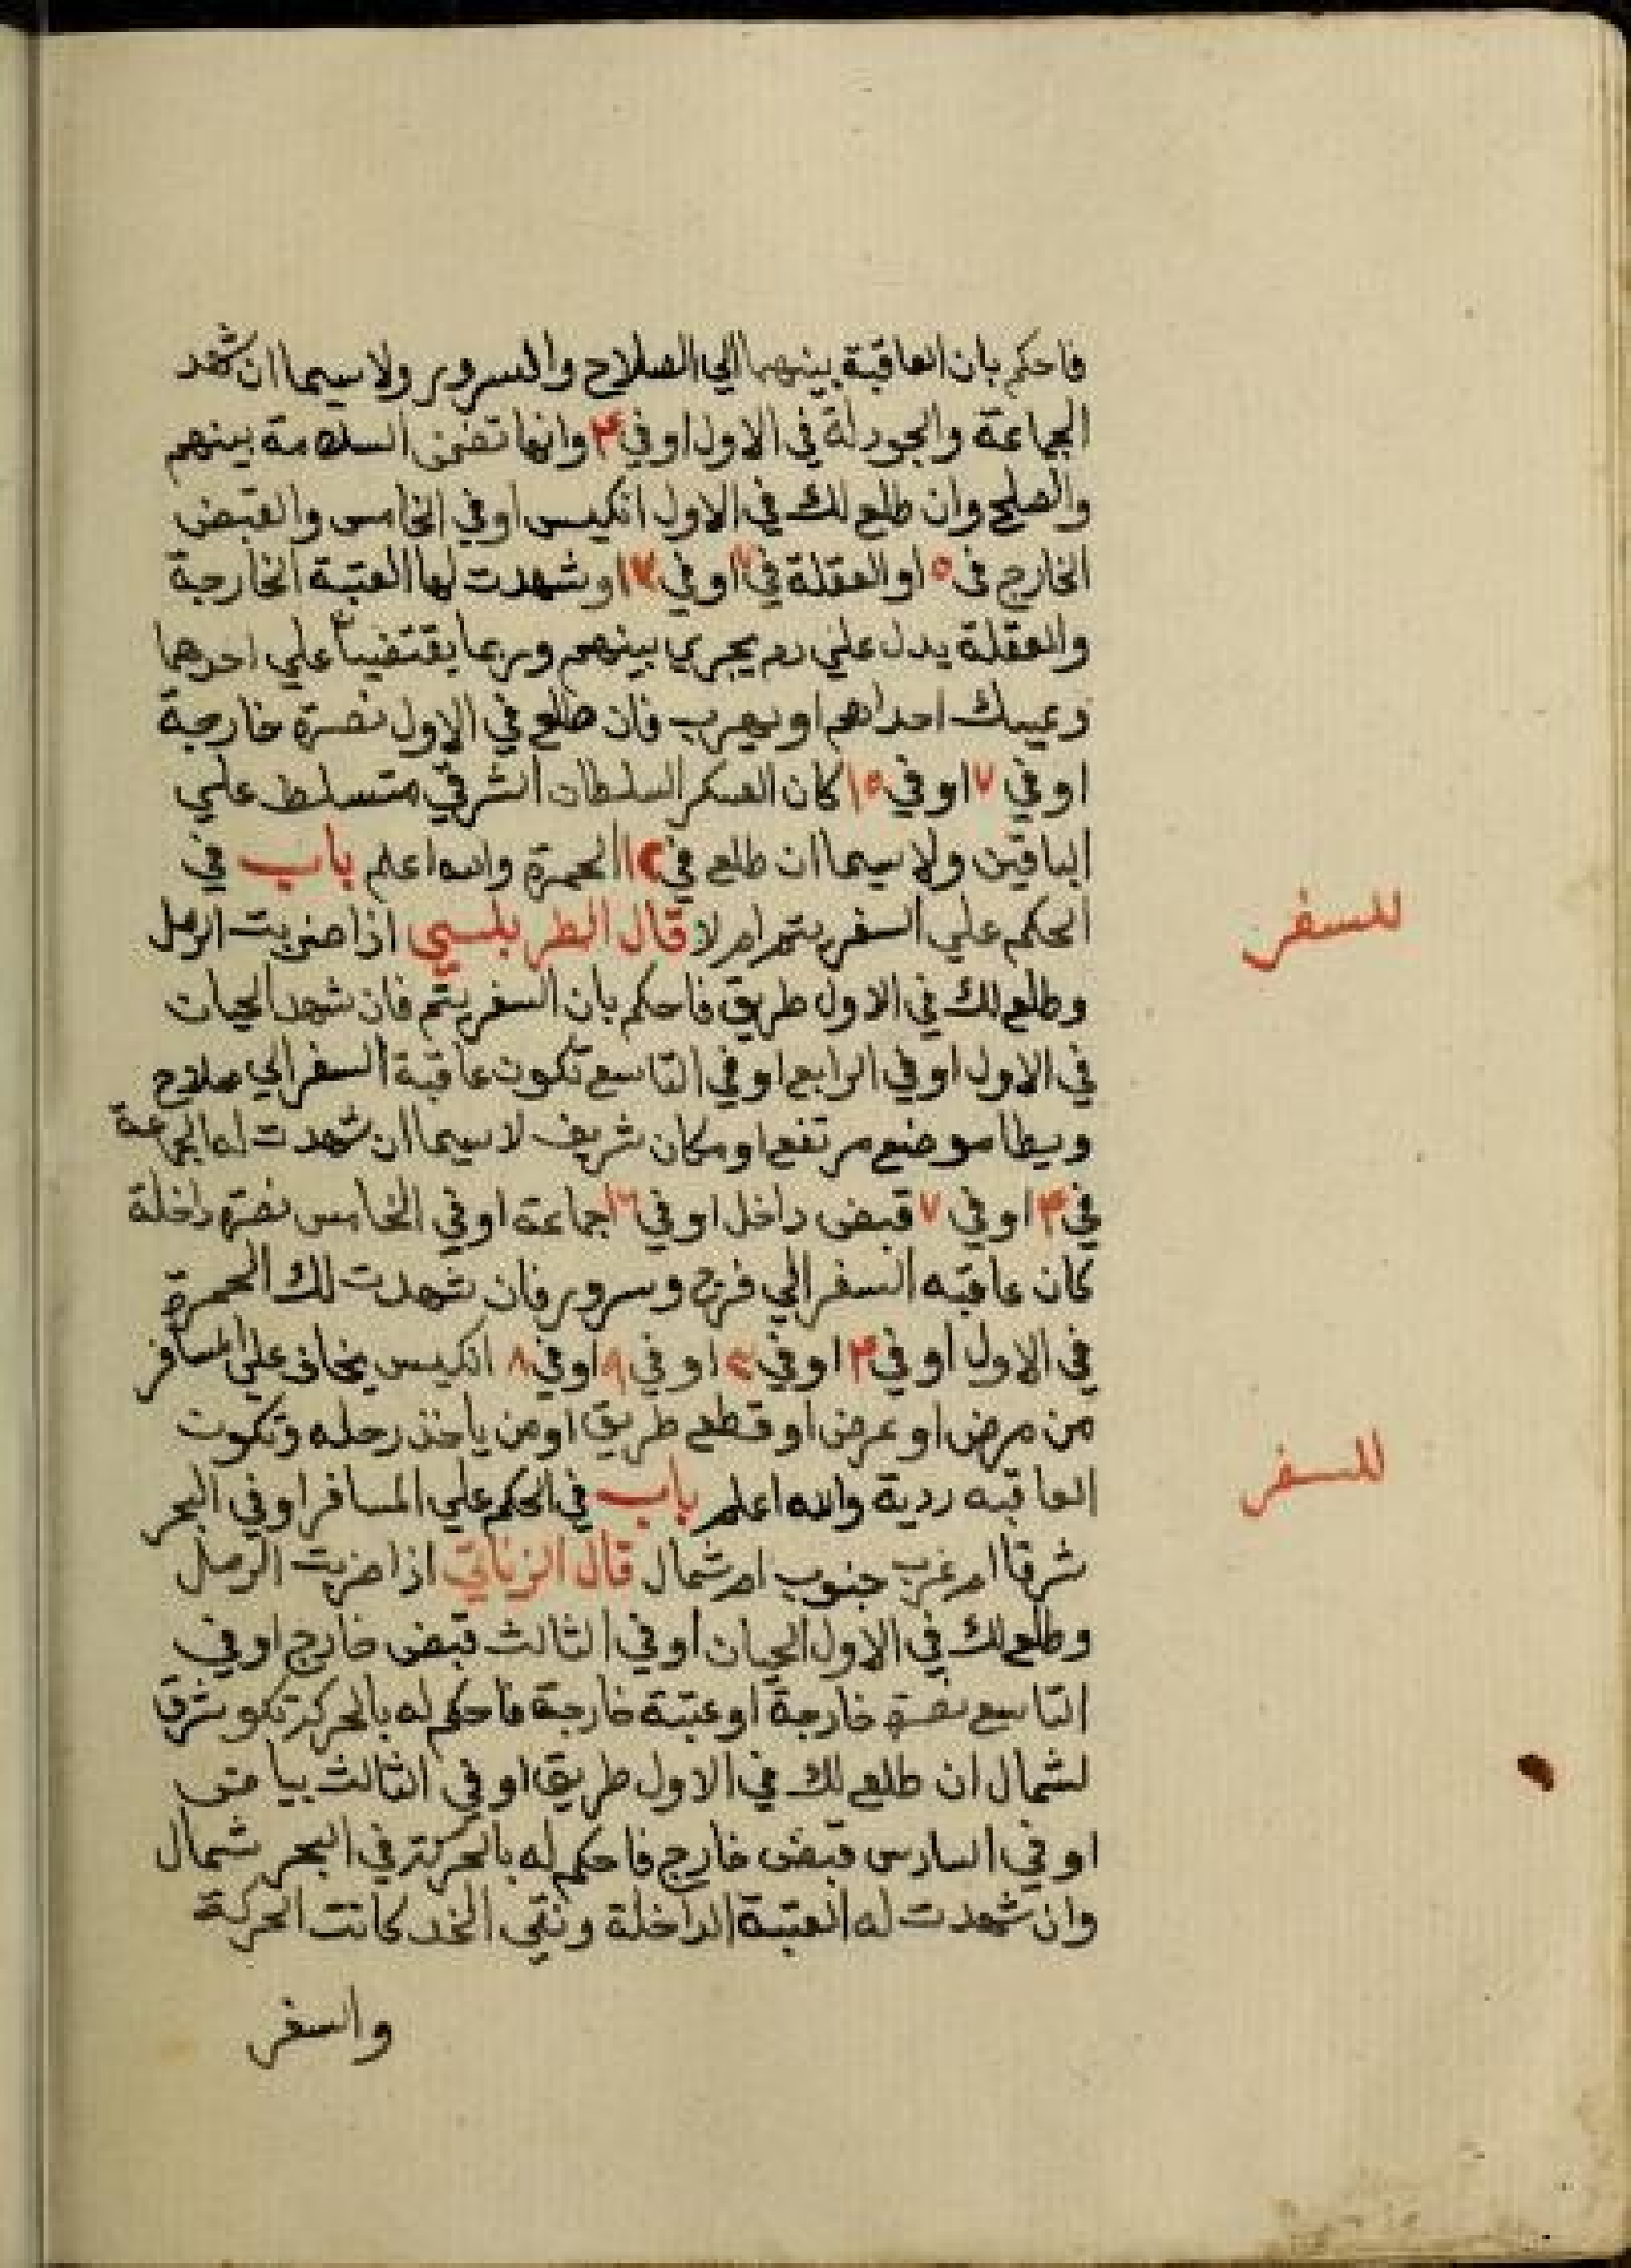 فاحكم بان العاقبة بينهما الي الصلاح والسرور ولا سيما ان شهد
الجماعة والجودلة في الاول او في ٤ وانها تضمن السلامة بينهم
والصلح وان طلع لك في الاول انكيس او في الخامس والقبض
الخارج في ٥ او العقلة في ٧ او في ٣ او شهدت لها العتبة الخارجة
والعقلة يدل علي دم يجري بينهم وربما يقتضي علي احدهما
احداهم او يهرب فان طلع في الاول نصرة خارجة
او في ٧ او في ١٥ كان العسكر السلطان الشرقي متسلط علي
الباقين ولا سيما ان طلع في ١٢ الحمرة والله اعلم باب في
الحكم علي السفر يتم ام لا قال الطربلسي اذا ضربت الرمل
وطلع لك في الاول طريق فاحكم بان السفر يتم فان شهد الحيان
في الاول او في الرابع او في التاسع تكون عاقبة السفر الي صلاح
ويطا موضع مرتفع او مكان شريف لا سيما ان شهدت له الجماعة
في ٤ او في ٧ قبض داخل او في ١٦ جماعة او في الخامس نصرة داخلة
كان عاقبه السفر الي فرح وسرور فان شهدت لك الحمرة
في الاول او في ٤ او في ٢ او في ٩ او في ٨ انكيس يخاف علي المسافر
من مرض او عرض او قطع طريق او من ياخذ رحله وتكون
العاقبه ردية والله اعلم باب في الحكم علي المسافر او في البحر
شرقا ام غرب جنوب ام شمال قال الزناتي اذا ضربت الرمل
وطلع لك في الاول الحيان او في الثالث قبض خارج او في
التاسع نصرة خارجة او عتبة خارجة فاحكم له بالحركة تكو شرقا
لشمال ان طلع لك في الاول طريق او في الثالث بياض
او في السادس قبض خارج فاحكم له بالحركة في البحر شمال
وان شهدت له العتبة الداخلة ونقي الخد كانت الحركة
والسفر
للسفر
للسفر